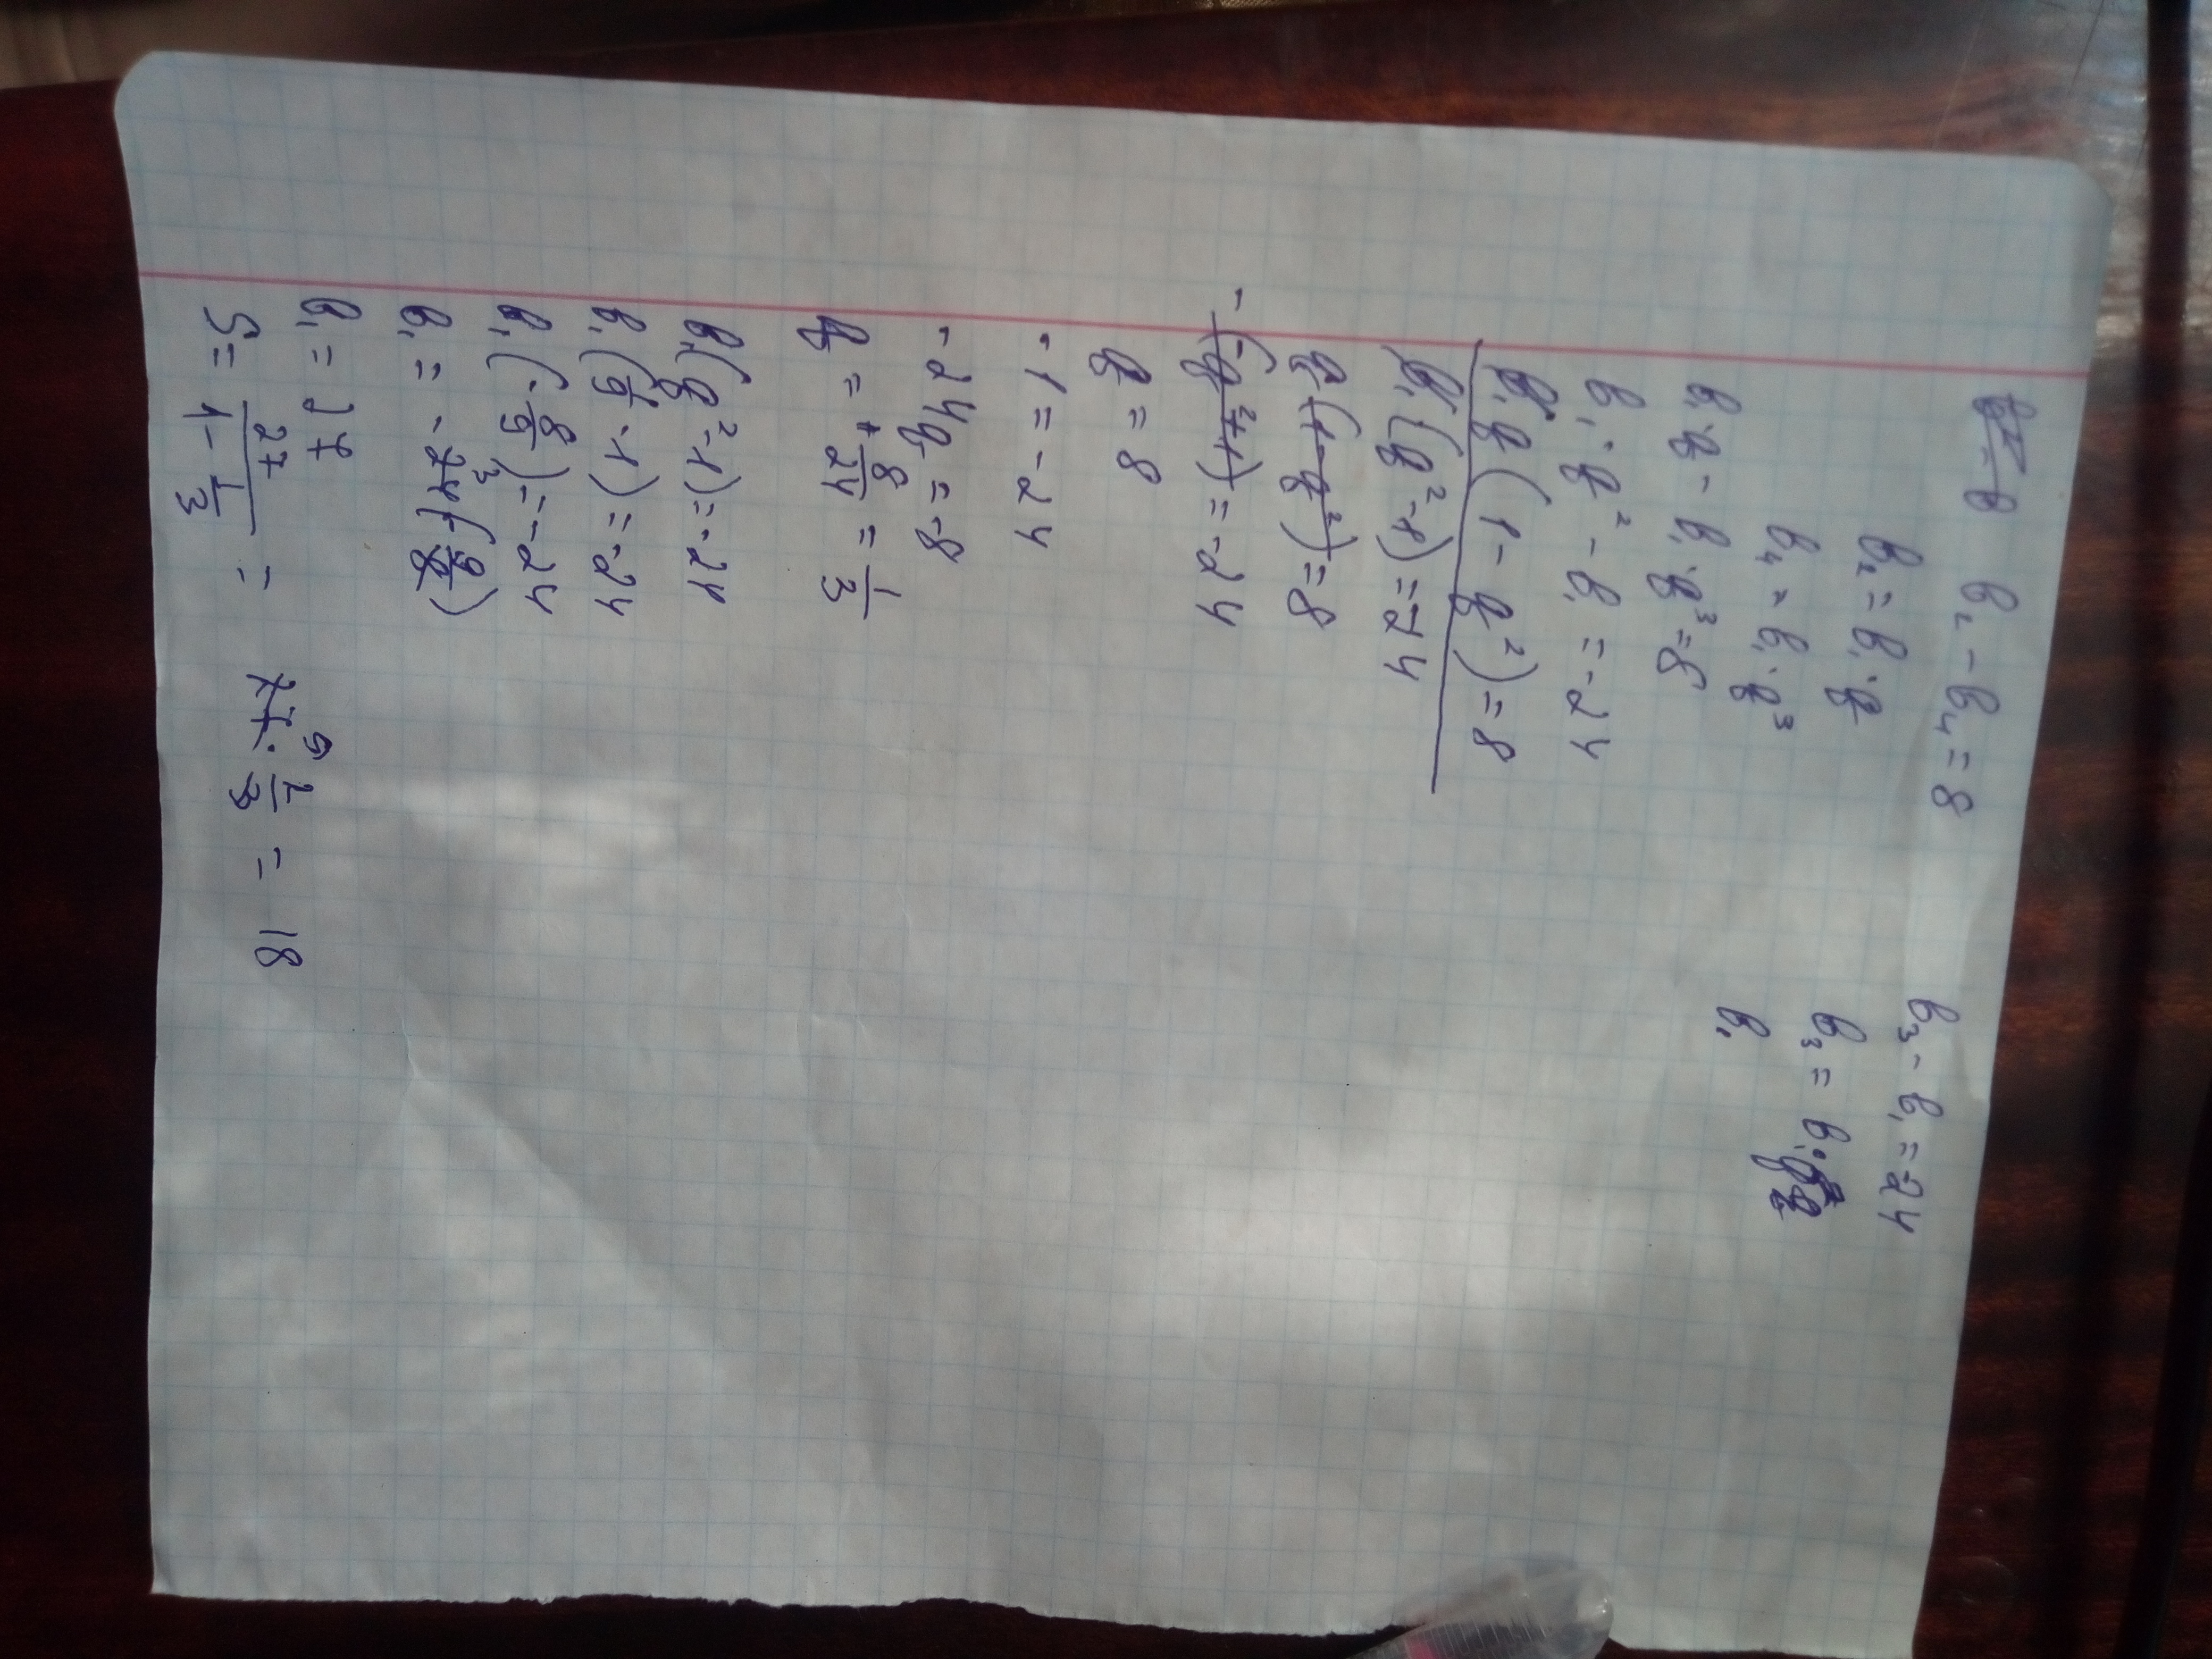 b₂ - b₄ = 8
b₃ - b₁ = 24
b₂ = b₁ · q
b₃ = b₁ · q²
b₄ = b₁ · q³
b₁
b₁ · q - b₁ · q³ = 8
b₁ · q² - b₁ = -24
b₁q(1 - q²) = 8
b₁(q² - 1) = -24
q(1 - q²) = 8
-(-q² + 1) = -24
q = 8
-1 = -24
-24q = -8
q = + 8/24 = 1/3
b₁(q² - 1) = -24
b₁(1/9 - 1) = -24
b₁(-8/9) = -24
b₁ = -24³(-9/8)
b₁ = 27
S = 27/(1 - 1/3) = 27⁹ · 2/3 = 18